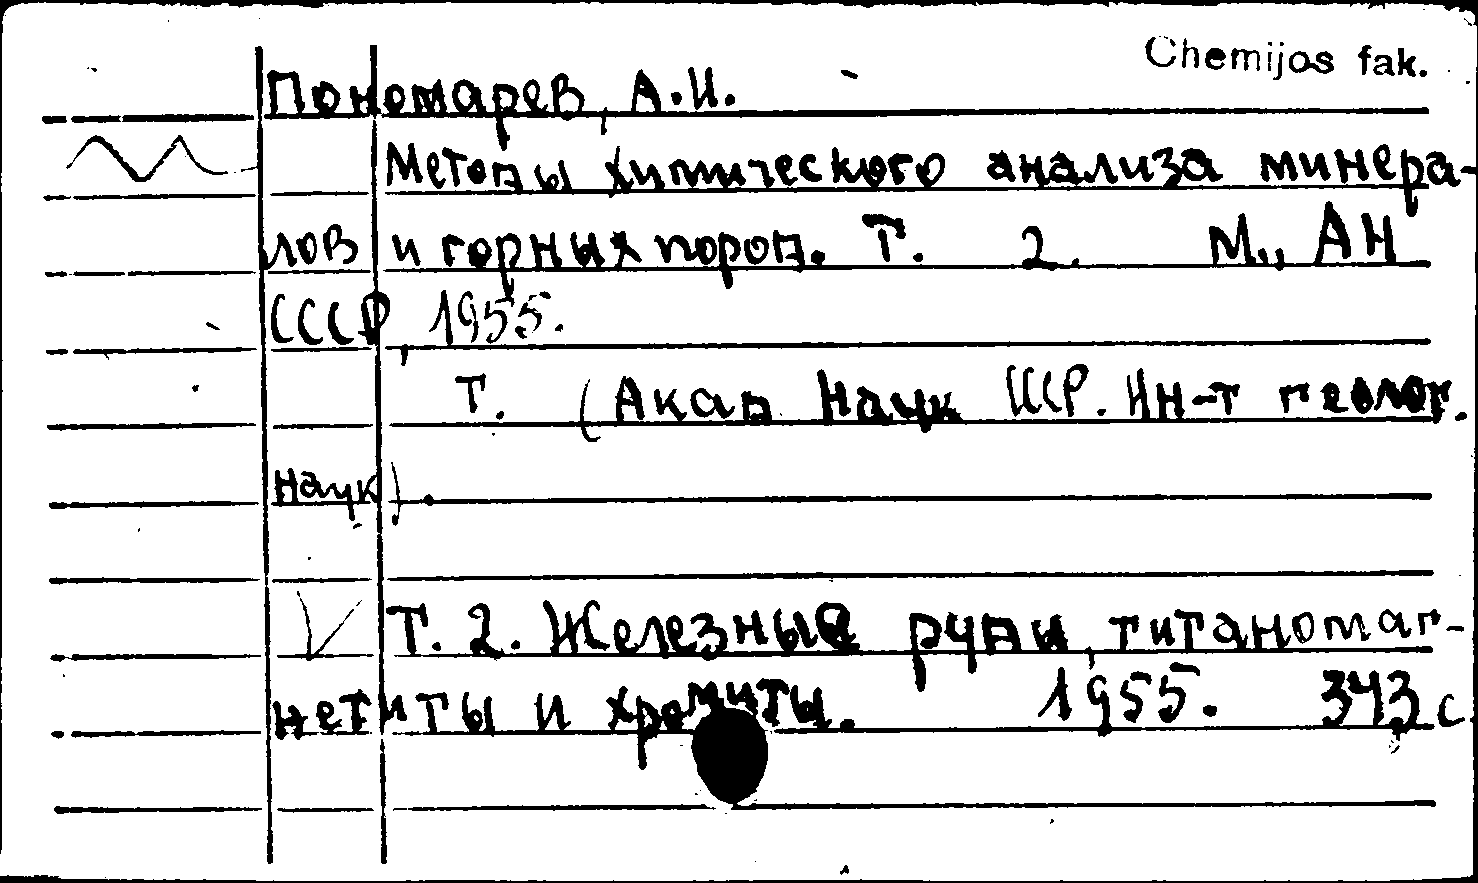 Chemijos fak.
Пономарев, А.И.
Методы химического анализа минера-
лов и горных пород. Т. 2. М., АН
СССР, 1955.
Т. (Акад Наук СССР. Ин-т геолог.
наук).
Т. 2. Железные руды, титаномаг-
нетиты и хромиты. 1955. 343 с